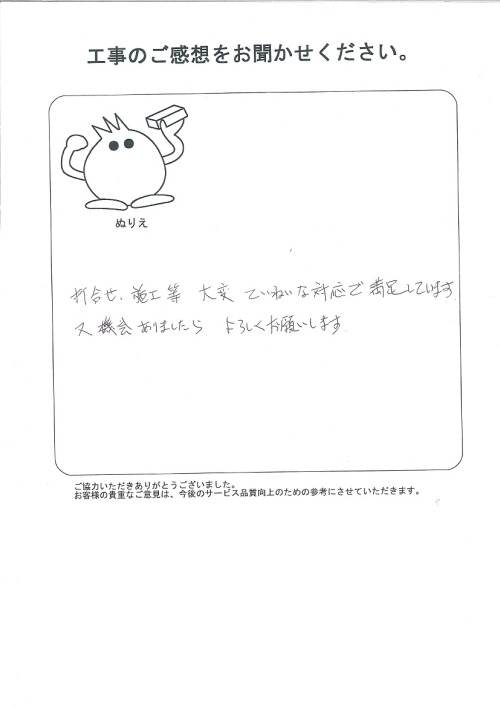 工事のご感想をお聞かせください。
ぬりえ
打合せ、施工等 大変 ていねいな対応で満足しています
又機会ありましたら よろしくお願いします
ご協力いただきありがとうございました。
お客様の貴重なご意見は、今後のサービス品質向上のための参考にさせていただきます。